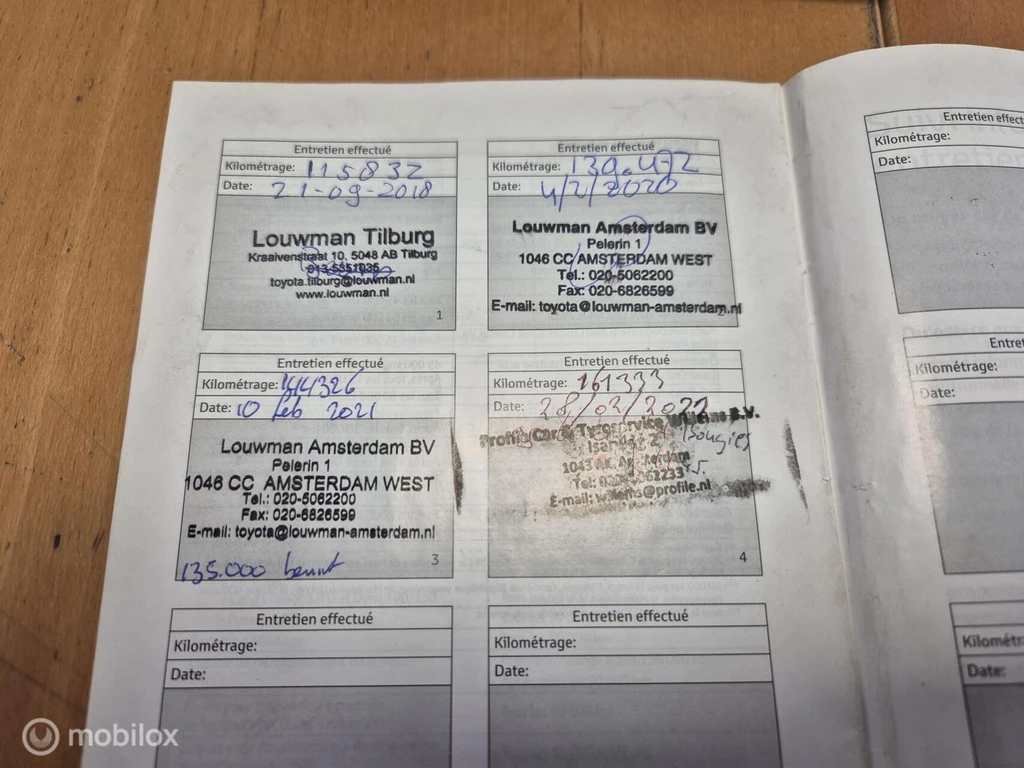 Entretien effectué
Kilométrage: 115832
Date: 21-09-2018
Louwman Tilburg
Kraaivenstraat 10, 5048 AB Tilburg
013-5851035
toyota.tilburg@louwman.nl
www.louwman.nl
1
Entretien effectué
Kilométrage: 130.472
Date: 4/2/2020
Louwman Amsterdam BV
Pelerin 1
1046 CC AMSTERDAM WEST
Tel.: 020-5062200
Fax: 020-6826599
E-mail: toyota@louwman-amsterdam.nl
2
Entretien effectué
Kilométrage: 144326
Date: 10 feb 2021
Louwman Amsterdam BV
Pelerin 1
1046 CC AMSTERDAM WEST
Tel.: 020-5062200
Fax: 020-6826599
E-mail: toyota@louwman-amsterdam.nl
135.000 beurt
3
Entretien effectué
Kilométrage: 161333
Date: 28/02/2022
Profile Car & Tyreservice Willems B.V.
Bougies
Amsterdam
Tel:
E-mail: willems@profile.nl
4
Entretien effectué
Kilométrage:
Date:
Entretien effectué
Kilométrage:
Date:
Entretien effect
Kilométrage:
Date:
Entret
Kilométrage:
Date:
Kilométr
Date:
mobilox